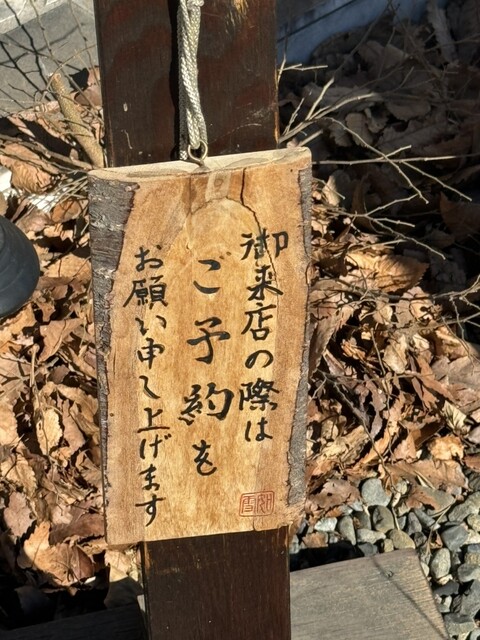 御来店の際は
ご予約を
お願い申し上げます